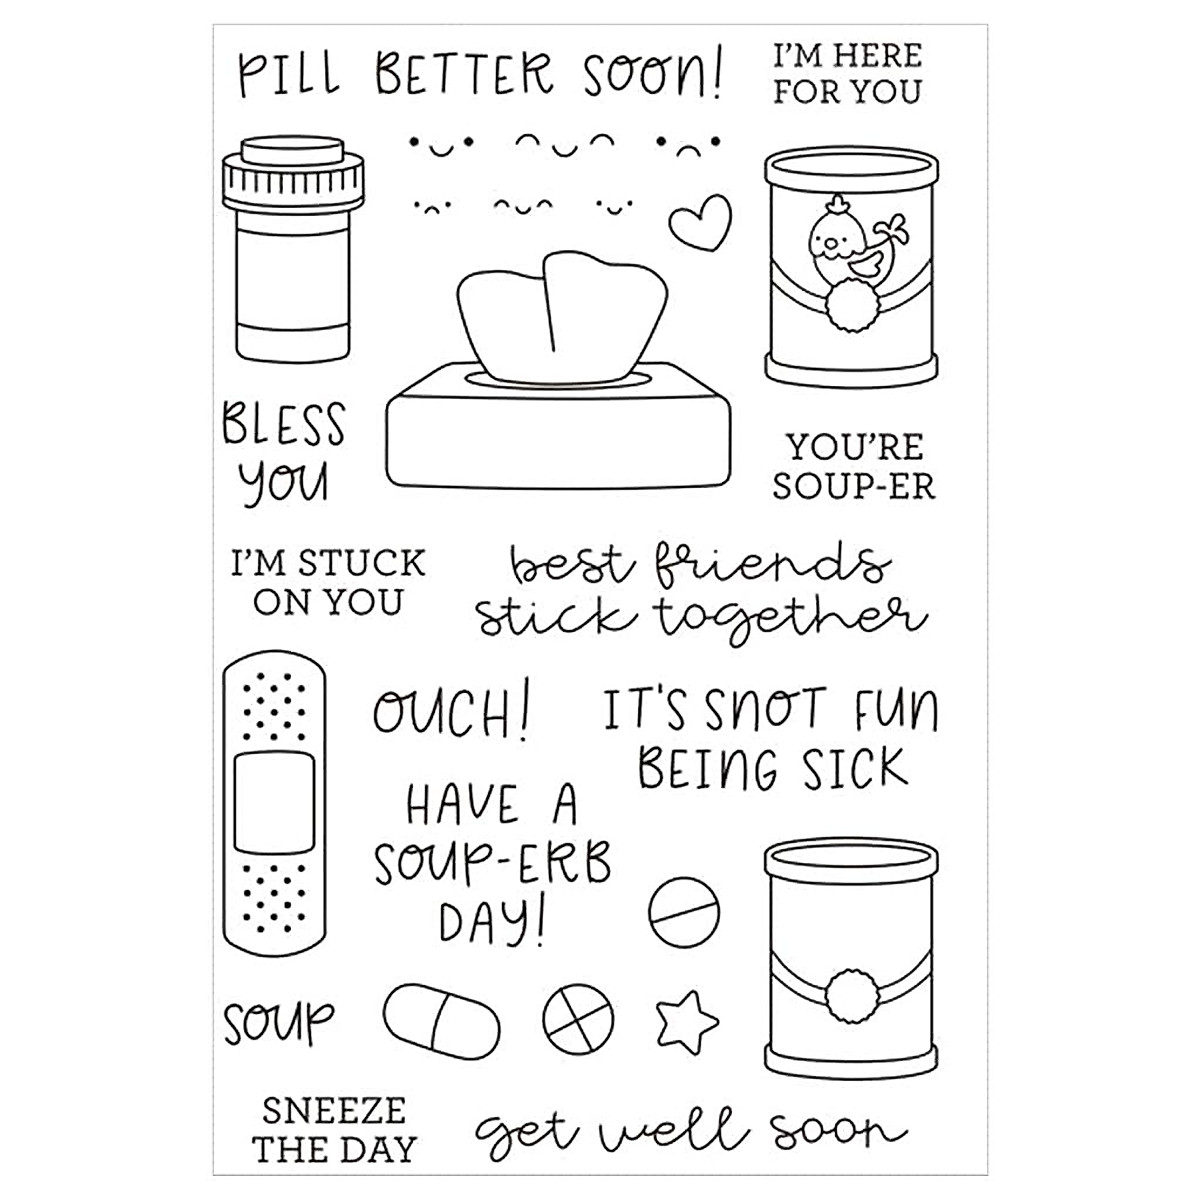 PILL BETTER SOON!
I'M HERE
FOR YOU
BLESS
YOU
YOU'RE
SOUP-ER
I'M STUCK
ON YOU
best friends
stick together
OUCH!
IT'S SNOT FUN
BEING SICK
HAVE A
SOUP-ERB
DAY!
SOUP
SNEEZE
THE DAY
get well soon